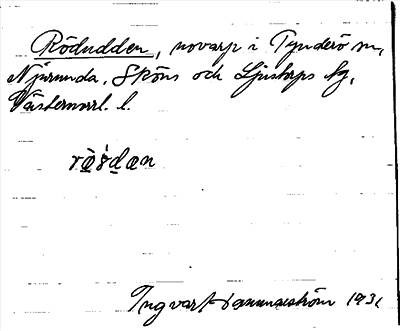 Rödudden, novarp i Tynderö sn,
Njurunda, Sköns och Ljustorps tg,
Västernorrl. l.
Ingvar Hammarström 1931